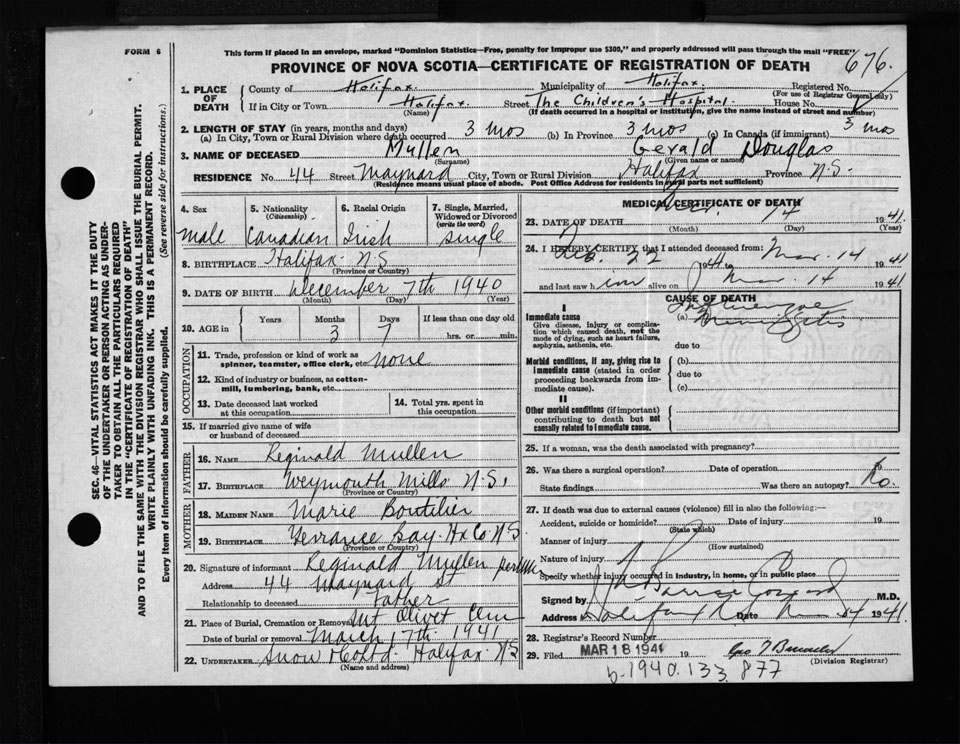 FORM 6
This form if placed in an envelope, marked "Dominion Statistics—Free, penalty for improper use $300," and properly addressed will pass through the mail "FREE"
PROVINCE OF NOVA SCOTIA—CERTIFICATE OF REGISTRATION OF DEATH
676.
SEC. 46—VITAL STATISTICS ACT MAKES IT THE DUTY
OF THE UNDERTAKER OR PERSON ACTING AS UNDER-
TAKER TO OBTAIN ALL THE PARTICULARS REQUIRED
IN THE "CERTIFICATE OF REGISTRATION OF DEATH"
AND TO FILE THE SAME WITH THE DIVISION REGISTRAR WHO SHALL ISSUE THE BURIAL PERMIT.
WRITE PLAINLY WITH UNFADING INK. THIS IS A PERMANENT RECORD.
Every item of information should be carefully supplied. (See reverse side for instructions.)
1. PLACE OF DEATH
County of Halifax. Municipality of Halifax. Registered No.
(For use of Registrar General only)
If in City or Town Halifax. Street The Children's Hospital. House No.
(Name) (If death occurred in a hospital or institution, give the name instead of street and number)
2. LENGTH OF STAY (in years, months and days)
(a) In City, Town or Rural Division where death occurred 3 mos (b) In Province 3 mos (c) In Canada (if immigrant) 3 mos
3. NAME OF DECEASED Mullen Gerald Douglas
(Surname) (Given name or names)
RESIDENCE No. 44 Street Maynard City, Town or Rural Division Halifax Province N.S.
(Residence means usual place of abode. Post Office Address for residents in rural parts not sufficient)
4. Sex 5. Nationality (Citizenship) 6. Racial Origin 7. Single, Married, Widowed or Divorced (write the word)
male Canadian Irish single
8. BIRTHPLACE Halifax N.S
(Province or Country)
9. DATE OF BIRTH December 7th 1940
(Month) (Day) (Year)
10. AGE in Years Months Days If less than one day old
3 7 hrs. or min.
OCCUPATION
11. Trade, profession or kind of work as spinner, teamster, office clerk, etc. none
12. Kind of industry or business, as cotton-mill, lumbering, bank, etc.
13. Date deceased last worked at this occupation
14. Total yrs. spent in this occupation
15. If married give name of wife or husband of deceased
FATHER
16. NAME Reginald Mullen
17. BIRTHPLACE Weymouth Mills N.S.
(Province or Country)
MOTHER
18. MAIDEN NAME Marie Boutilier
19. BIRTHPLACE Terrance Bay. Hx Co N.S
(Province or Country)
20. Signature of informant Reginald Mullen
Address 44 Maynard St
Relationship to deceased Father
21. Place of Burial, Cremation or Removal Mt Olivet Cem
Date of burial or removal March 17th 1941
22. UNDERTAKER Snow & Co Ltd. Halifax. N.S
(Name and address)
MEDICAL CERTIFICATE OF DEATH
23. DATE OF DEATH Mar. 14 1941.
(Month) (Day) (Year)
24. I HEREBY CERTIFY that I attended deceased from:
Feb. 22 to Mar. 14 1941
and last saw him alive on Mar. 14 1941
CAUSE OF DEATH
I
Immediate cause
Give disease, injury or complication which caused death, not the mode of dying, such as heart failure, asphyxia, asthenia, etc.
(a) Influenzae Meningitis
due to
Morbid conditions, if any, giving rise to immediate cause (stated in order proceeding backwards from immediate cause).
(b)
due to
(c)
II
Other morbid conditions (if important) contributing to death but not causally related to immediate cause.
25. If a woman, was the death associated with pregnancy?
26. Was there a surgical operation? Date of operation
State findings Was there an autopsy? No.
27. If death was due to external causes (violence) fill in also the following:—
Accident, suicide or homicide? Date of injury 19
(State which)
Manner of injury
(How sustained)
Nature of injury
Specify whether injury occurred in industry, in home, or in public place
Signed by M.D.
Address Halifax Date Mar 14 1941.
28. Registrar's Record Number
29. Filed MAR 18 1941 19
(Division Registrar)
b-1940.133.877